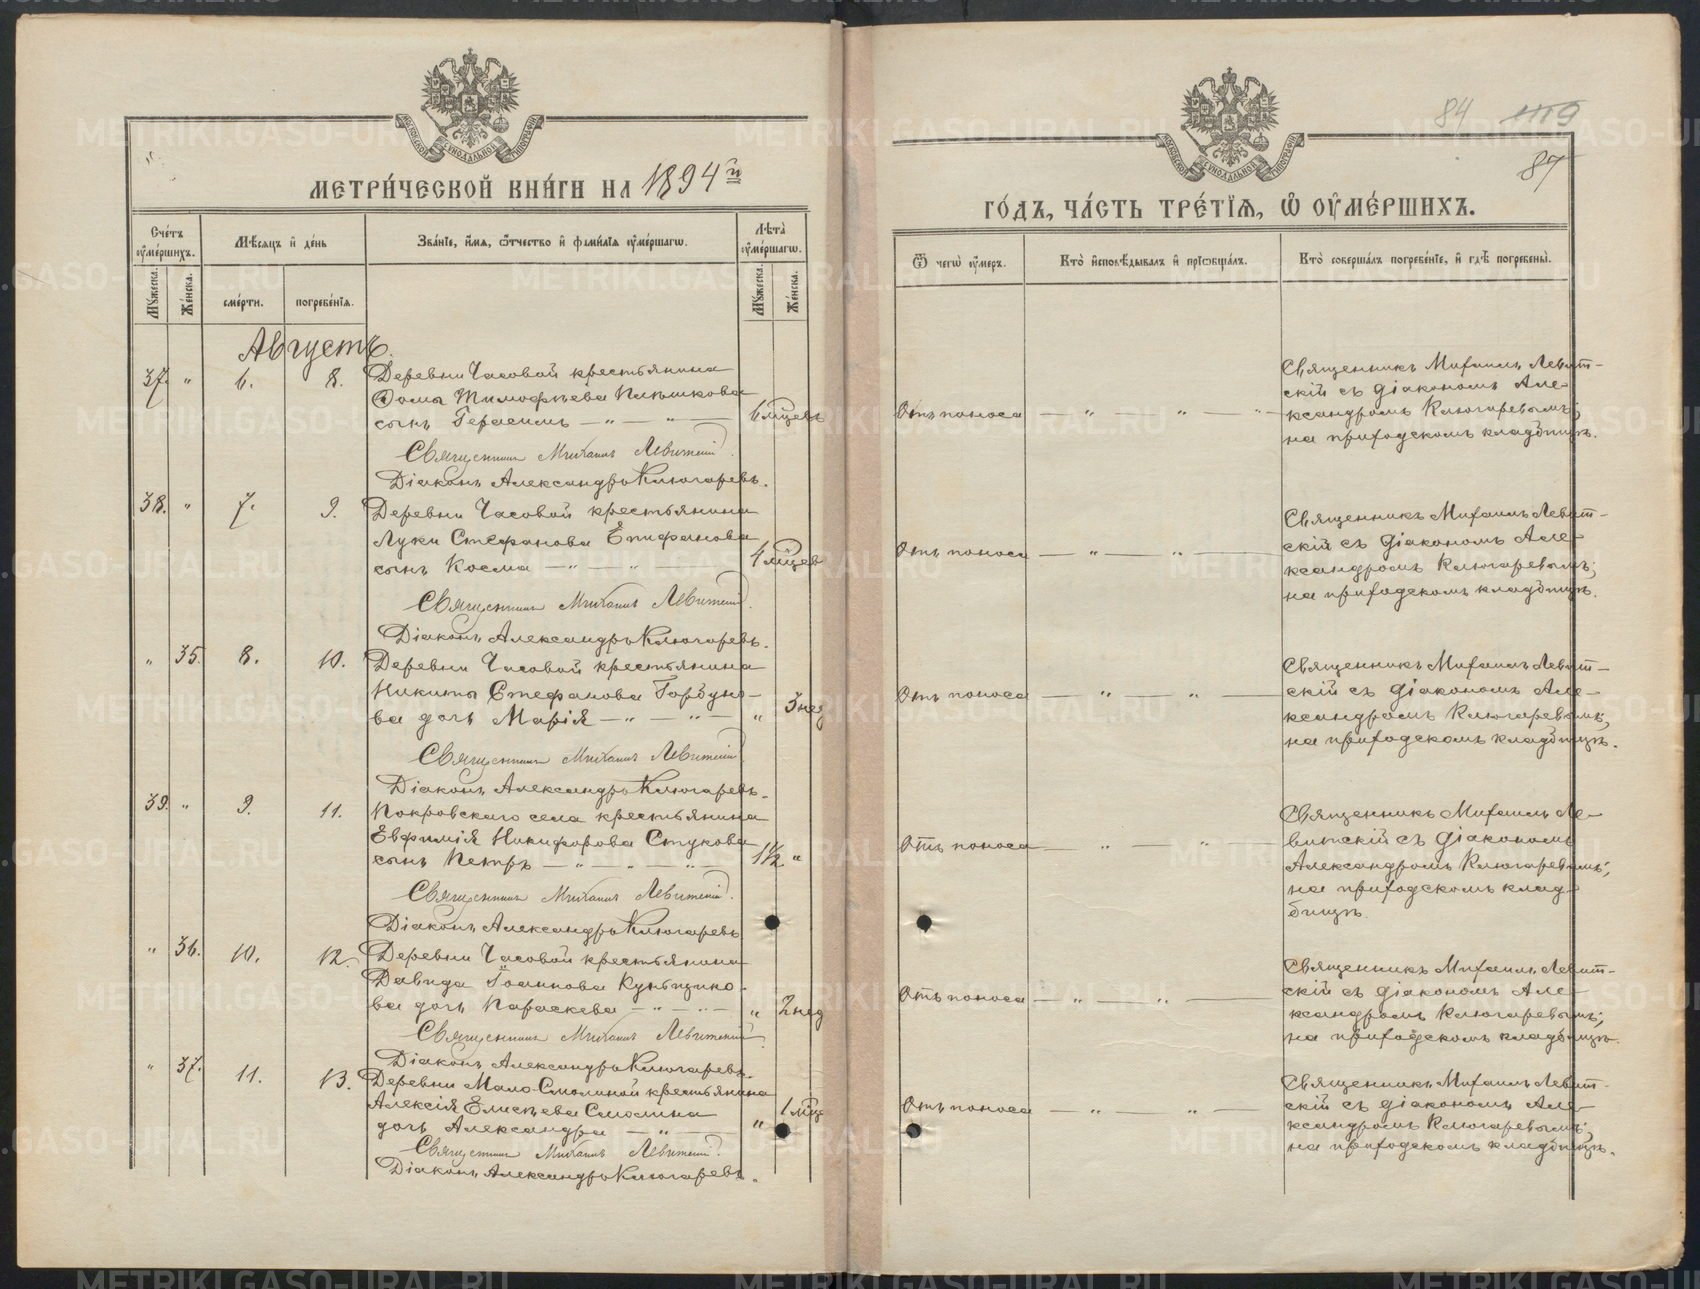 МЕТРИ́ЧЕСКОЙ КНИ́ГИ НА 1894й
Сче́тъ ᲂу҆ме́ршихъ.
Мѣ́сѧцъ и҆ де́нь
Зва́нїе, и҆́мѧ, ѻ҆́тчество и҆ фами́лїѧ ᲂу҆ме́ршагѡ.
Лѣ́та ᲂу҆ме́ршагѡ.
Мꙋ́жеска.
Же́нска.
сме́рти.
погребе́нїѧ.
Мꙋ́жеска.
Же́нска.
Августъ.
37. " 6. 8. Деревни Часовой крестьянина
Ѳомы Тимофѣева Плѣшкова
сынъ Герасимъ — " — " — 6 мѣцевъ
Священникъ Михаилъ Левитскій.
Діаконъ Александръ Ключаревъ.
38. " 7. 9. Деревни Часовой крестьянина
Луки Стефанова Епифанова
сынъ Косма — " — " — 4 мѣцев
Священникъ Михаилъ Левитскій.
Діаконъ Александръ Ключаревъ.
" 35. 8. 10. Деревни Часовой крестьянина
Никиты Стефанова Горбуно-
ва дочь Марія — " — " — " 3 нед
Священникъ Михаилъ Левитскій.
Діаконъ Александръ Ключаревъ.
39. " 9. 11. Покровскаго села крестьянина
Евфимія Никифорова Стукова
сынъ Петръ — " — " — " — 1½ "
Священникъ Михаилъ Левитскій.
Діаконъ Александръ Ключаревъ
" 36. 10. 12. Деревни Часовой крестьянина
Давида Іоаннова
ва дочь Параскева — " — " — " 2 нед
Священникъ Михаилъ Левитскій.
Діаконъ Александръ Ключаревъ.
" 37. 11. 13. Деревни Мало-Смолиной крестьянина
Алексія Елисѣева Смолина
дочь Александра — " — " 1 мѣц
Священникъ Михаилъ Левитскій.
Діаконъ Александръ Ключаревъ.
84 1119
87
ГО́ДЪ, ЧА́СТЬ ТРЕ́ТЇѦ, Ѡ҆ ОУ҆МЕ́РШИХЪ.
Ѿ чегѡ̀ ᲂу҆́меръ.
Кто̀ и҆сповѣ́дывалъ и҆ прїѡбща́лъ.
Кто̀ соверша́лъ погребе́нїе, и҆ гдѣ̀ погребены̀.
Отъ поноса — " — " — " —
Священникъ Михаилъ Левит-
скій съ діакономъ Але-
ксандромъ Ключаревымъ;
на приходскомъ кладбищѣ.
Отъ поноса — " — " —
Священникъ Михаилъ Левит-
скій съ діакономъ Але-
ксандромъ Ключаревымъ;
на приходскомъ кладбищѣ.
Отъ поноса — " — " —
Священникъ Михаилъ Левит-
скій съ діакономъ Але-
ксандромъ Ключаревымъ;
на приходскомъ кладбищѣ.
Отъ поноса — " — " —
Священникъ Михаилъ Ле-
витскій съ діакономъ
Александромъ Ключаревымъ;
на приходскомъ клад-
бищѣ.
Отъ поноса — " — " —
Священникъ Михаилъ Левит-
скій съ діакономъ Але-
ксандромъ Ключаревымъ;
на приходскомъ кладбищѣ.
Отъ поноса — " — " —
Священникъ Михаилъ Левит-
скій съ діакономъ Але-
ксандромъ Ключаревымъ;
на приходскомъ кладбищѣ.
METRIKI.GASO-URAL.RU